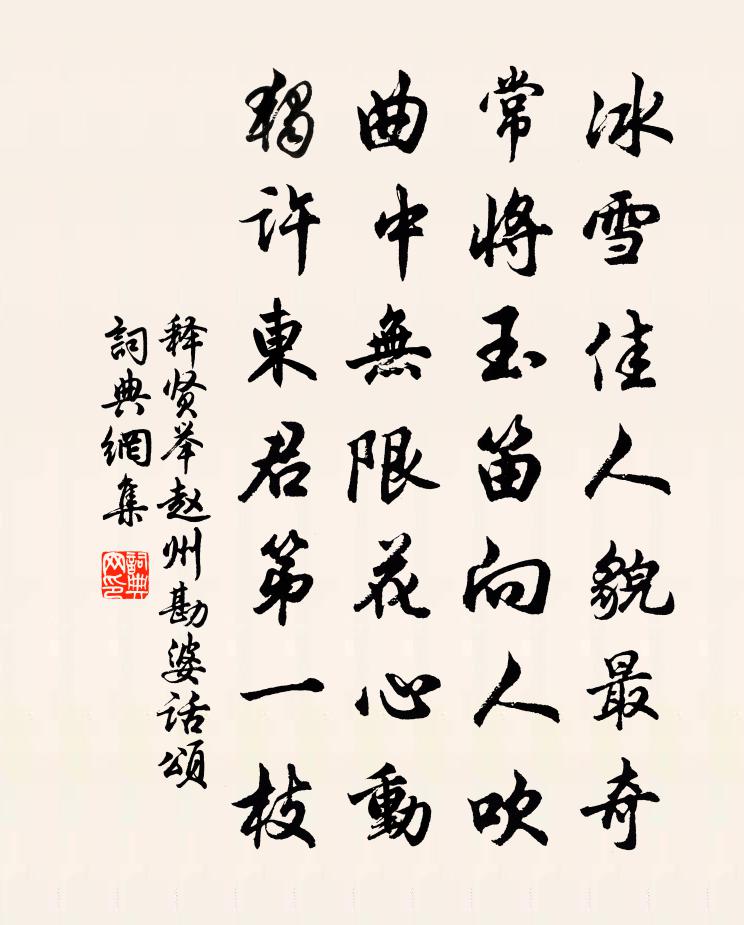 冰雪佳人貌最奇
常將玉笛向人吹
曲中無限花心動
獨許東君第一枝
释贤举赵州勘婆话颂
詞典網集
詞典網印